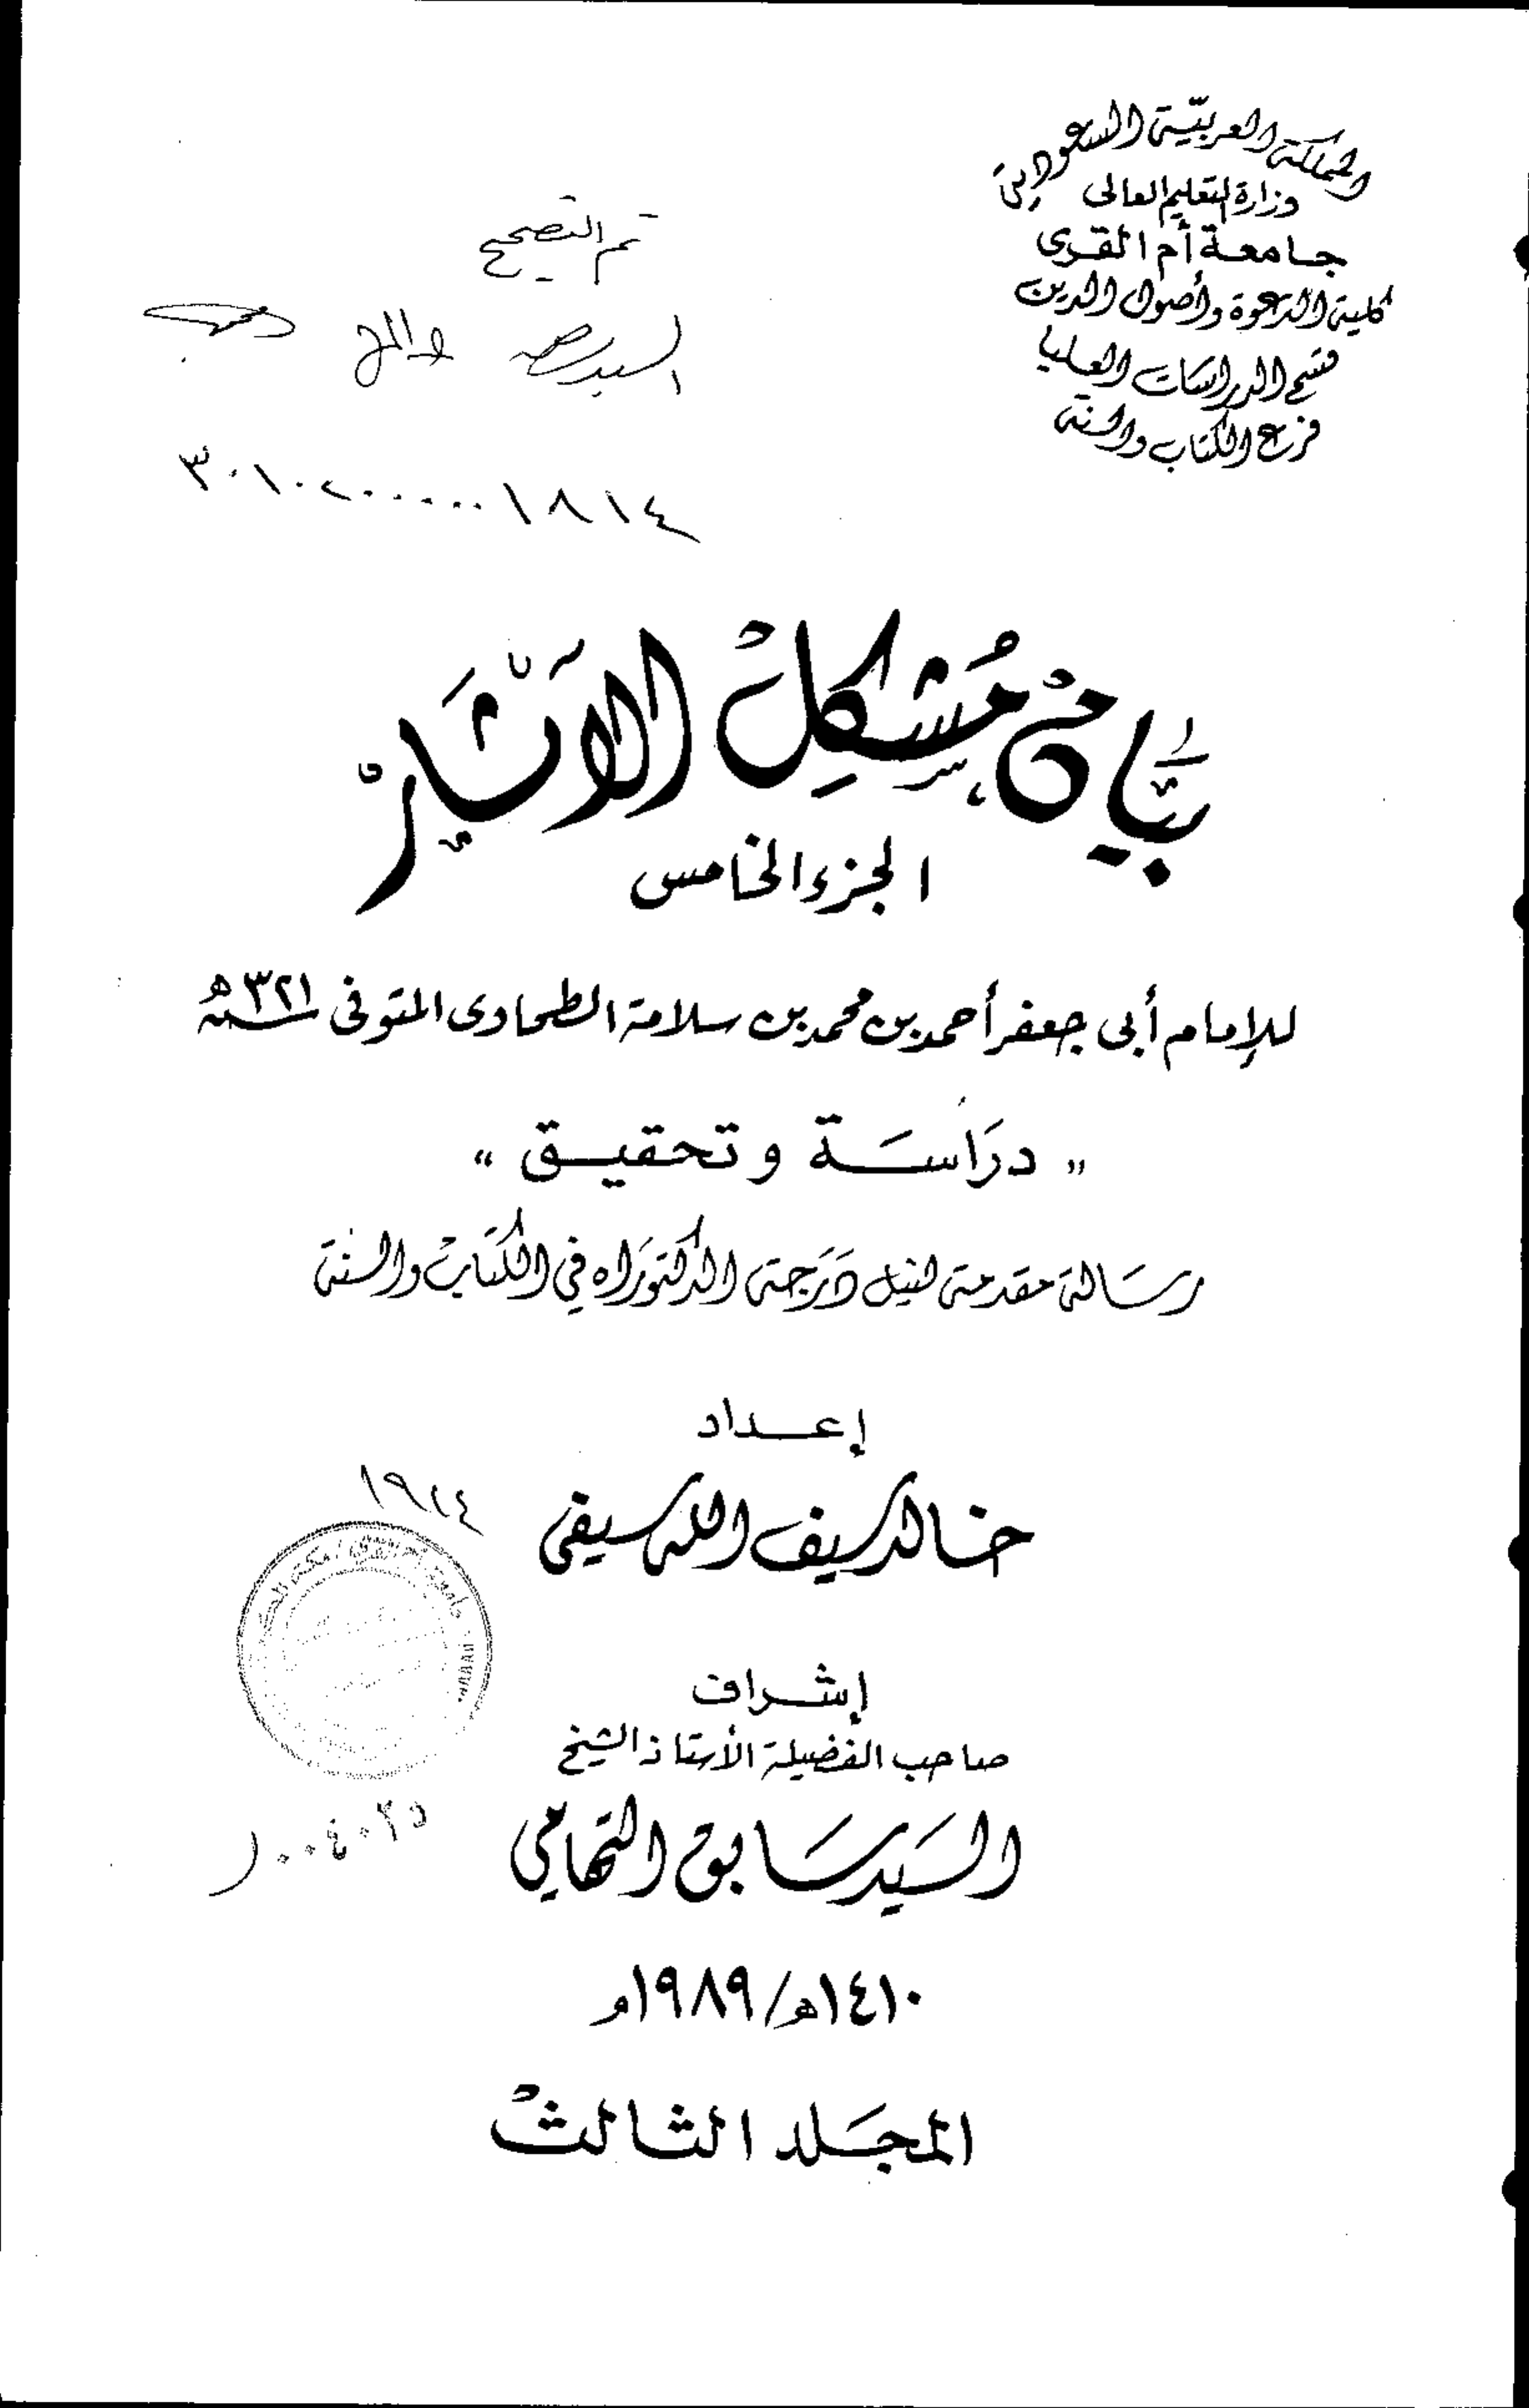 المملكة العربيّة السعودية
وزارة التعليم العالى
جامعة أم القرى
كلية الدعوة وأصول الدين
قسم الدراسات العليا
فرع الكتاب والسنة
تم التصحيح
٣٠١٠٢٠٠٠٠٠١٨١٤
بيَان مُشكِل الآثَار
الجزء الخامس
للإمام أبى جعفر أحمد بن محمد بن سلامة الطحاوى المتوفى سنة ٣٢١ھ
" درَاسَة وتحقيق "
رسَالة مقدمة لنيل دَرَجة الدكتورَاه في الكتَاب والسنة
إعداد
خالد سيف الله سيفى
١٩١٤
إشراف
صاحب الفضيلة الأستاذ الشيخ
السَيد سَابق التهامي
١٤١٠ھ/١٩٨٩م
المجَلد الثالث